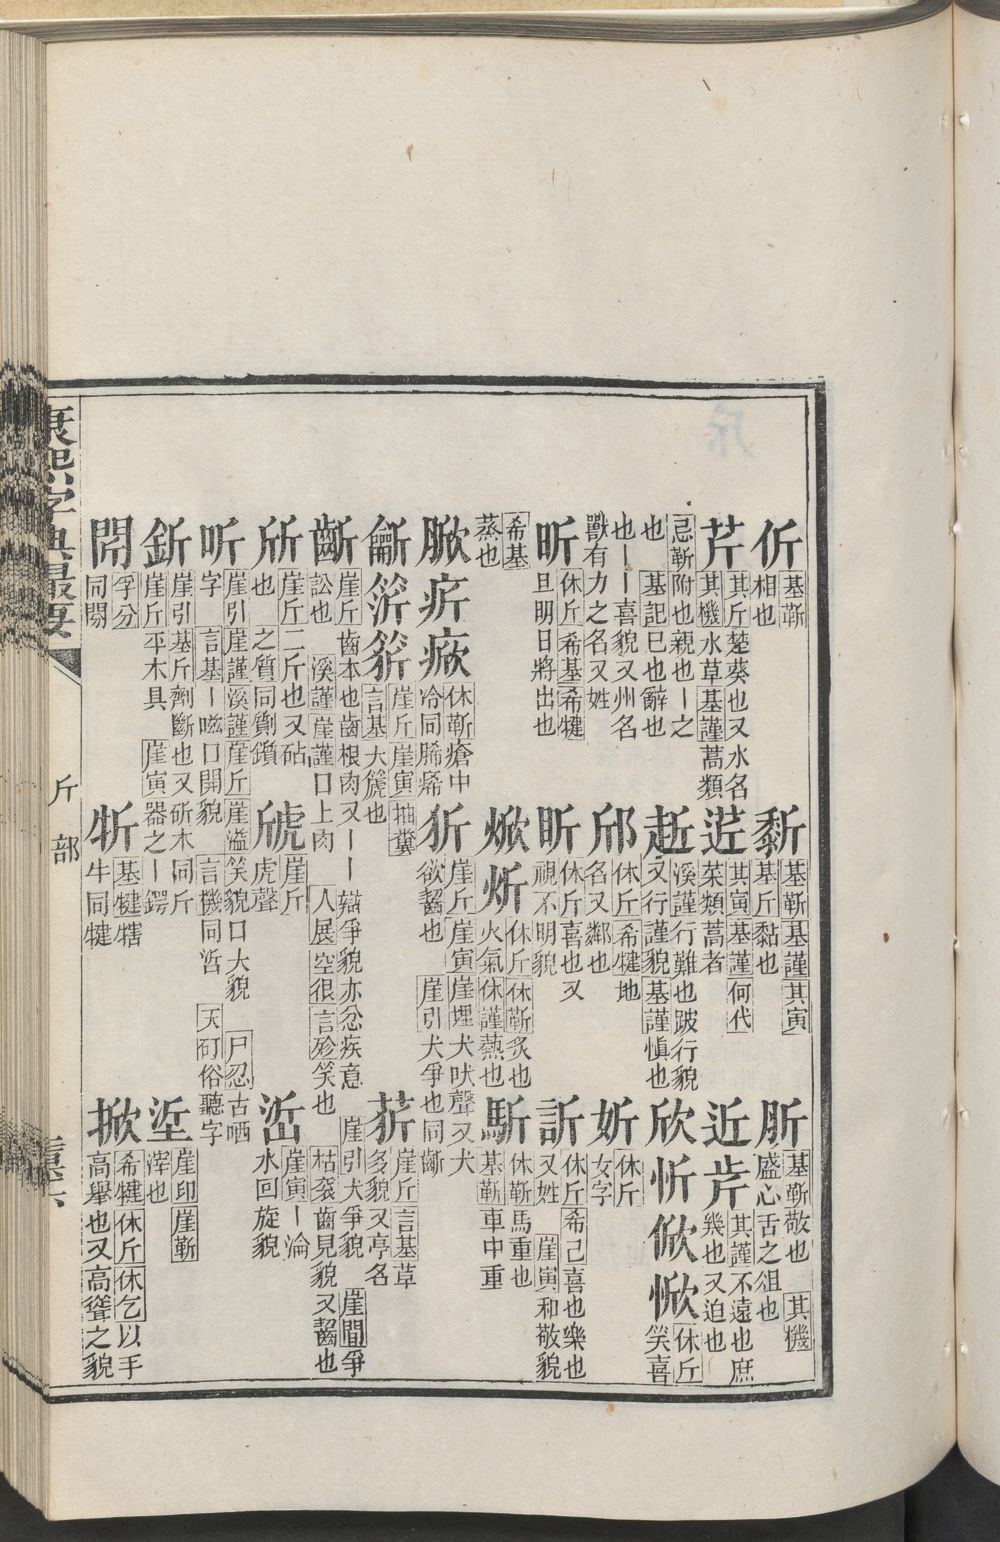 伒 基靳相也 䵑 基靳基謹其寅基斤黏也 肵 基靳敬也 其機盛心舌之俎也
芹 其斤楚葵也又水名其機水草基謹蒿類 菦 其寅基謹何代菜類蒿者 近岸 其謹不遠也庶幾也又迫也
忌靳附也親也丨之也 基記巳也辭也 赾 又行謹貌基謹愼也溪謹行難也跛行貌 欣忻俽惞 休斤笑喜
也丨丨喜貌又州名獸有力之名又姓 邤 休斤希犍地名又鄰也 妡 休斤女字
昕 休斤希基希犍旦明日將出也 盺 休斤喜也又視不明貌 訢 休斤希己喜也樂也又姓 崖寅和敬貌
希基蒸也 焮炘 休斤休靳炙也火氣休謹爇也 馸 休靳馬重也基靳車中重
脪疨 休靳瘡中冷同脪痚 犾 崖斤崖寅崖埋犬吠聲又犬欲齧也 崖引犬爭也同齗
崖斤崖寅抽糞言基大箎也 菥 崖斤言基草多貌又亭名
齗 崖斤齒本也齒根肉又丨丨辯爭貌亦忿疾意訟也 溪謹崖謹口上肉 人展空很言殄笑也 崖引犬爭貌 崖間爭 枯袞齒見貌又齧也
斦 崖斤二斤也又砧也 之質同劕鑕 虒 崖斤虎聲 崖寅丨淪水回旋貌
听 崖引崖謹溪謹崖斤崖溢笑貌口大貌 尸忍古哂字 言基丨嗞口開貌 言機同㖾 天矴俗聽字
釿 崖引基斤劑斷也又斫木同斤崖斤平木具 崖寅器之丨鍔 垽 崖印崖靳滓也
閍 孚分同閼 㸫 基犍犗牛同犍 掀 希犍休斤休乞以手高舉也又高聳之貌
康熙字典最要 斤部